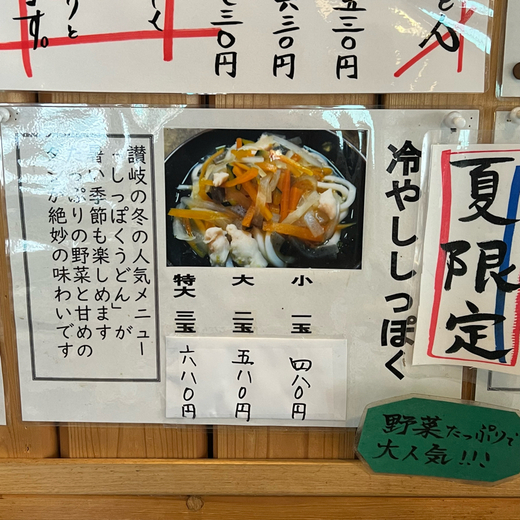 どん
五三〇円
六三〇円
七三〇円
しく
りと
す。
夏限定
冷やししっぽく
小 一玉 四八〇円
大 二玉 五八〇円
特大 三玉 六八〇円
讃岐の冬の人気メニュー
「しっぽくうどん」が
暑い季節も楽しめます
たっぷりの野菜と甘めの
絶妙の味わいです
野菜たっぷりで
大人気!!!